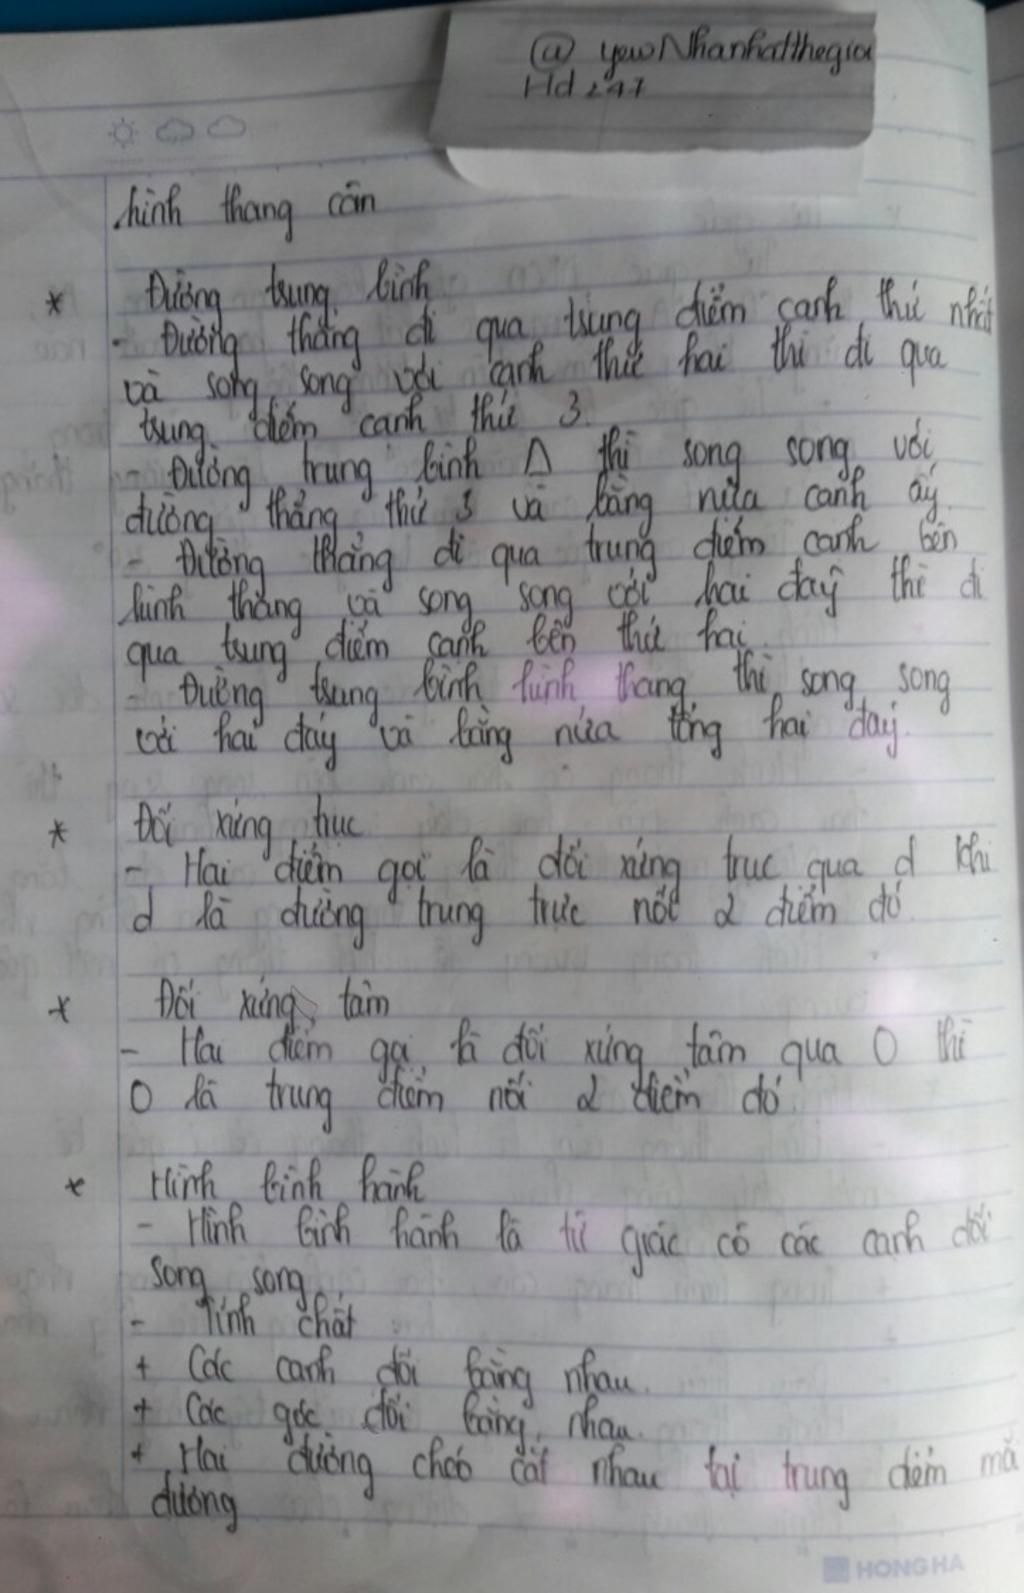 @ yewNhanhatthegioi
Hd 247
hình thang cân
* Đường trung bình
- Đường thẳng đi qua trung điểm cạnh thứ nhất
và song song với cạnh thứ hai thì đi qua
trung điểm cạnh thứ 3
- Đường trung bình Δ thì song song với
đường thẳng thứ 3 và bằng nửa cạnh ấy
- Đường thẳng đi qua trung điểm cạnh bên
hình thang và song song với hai đáy thì đi
qua trung điểm cạnh bên thứ hai.
- Đường trung bình hình thang thì song song
với hai đáy và bằng nửa tổng hai đáy.
* Đối xứng trục
- Hai điểm gọi là đối xứng trục qua d khi
d là đường trung trực nối 2 điểm đó
* Đối xứng tâm
- Hai điểm gọi là đối xứng tâm qua O thì
O là trung điểm nối 2 điểm đó
* Hình bình hành
- Hình bình hành là tứ giác có các cạnh đối
song song
- Tính chất
+ Các cạnh đối bằng nhau.
+ Các góc đối bằng nhau.
+ Hai đường chéo cắt nhau tại trung điểm mỗi
đường
HONG HA